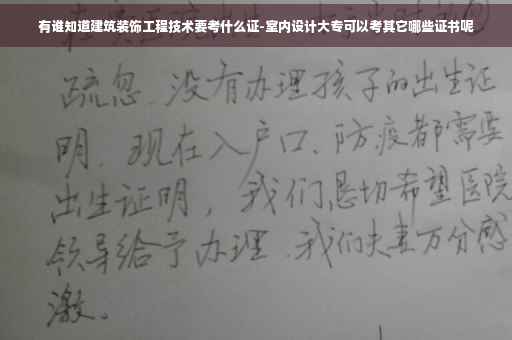 有谁知道建筑装饰工程技术要考什么证-室内设计大专可以考其它哪些证书呢
疏忽、没有办理孩子的出生证
明、现在入户口、防疫都需要
出生证明，我们恳切希望医院
领导给予办理、我们夫妻万分感
激。